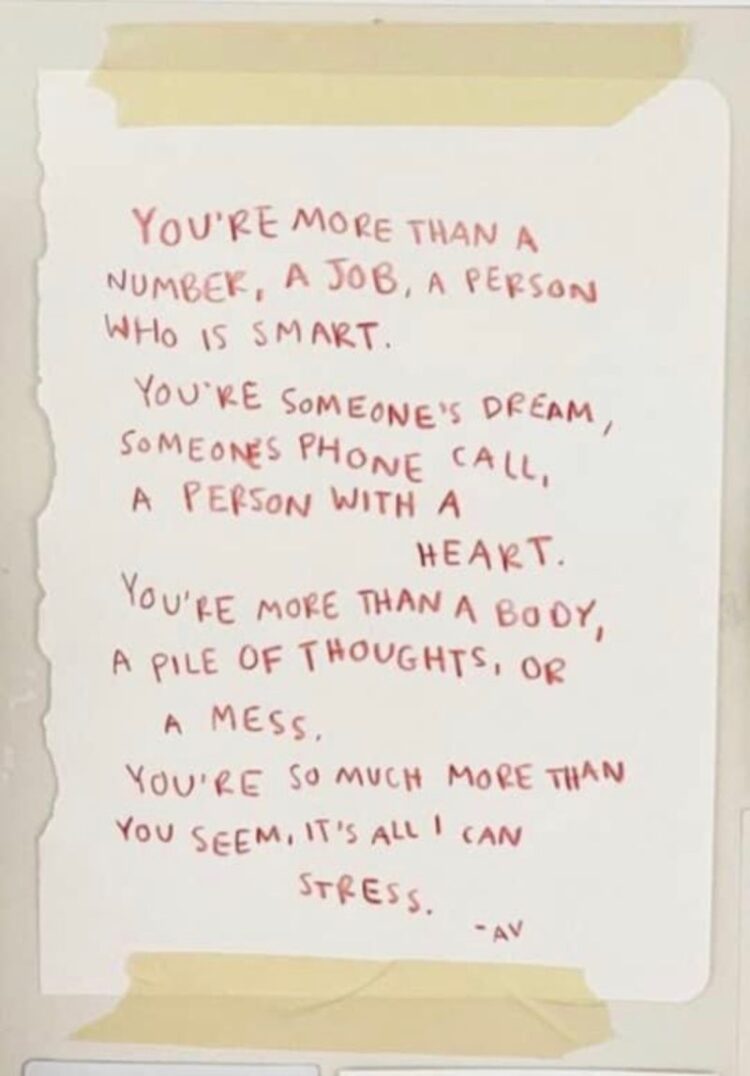 YOU'RE MORE THAN A
NUMBER, A JOB, A PERSON
WHO IS SMART.
YOU'RE SOMEONE'S DREAM,
SOMEONE'S PHONE CALL,
A PERSON WITH A
HEART.
YOU'RE MORE THAN A BODY,
A PILE OF THOUGHTS, OR
A MESS.
YOU'RE SO MUCH MORE THAN
YOU SEEM, IT'S ALL I CAN
STRESS.
-AV